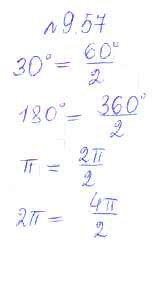 №9.57
30° = 60°/2
180° = 360°/2
π = 2π/2
2π = 4π/2